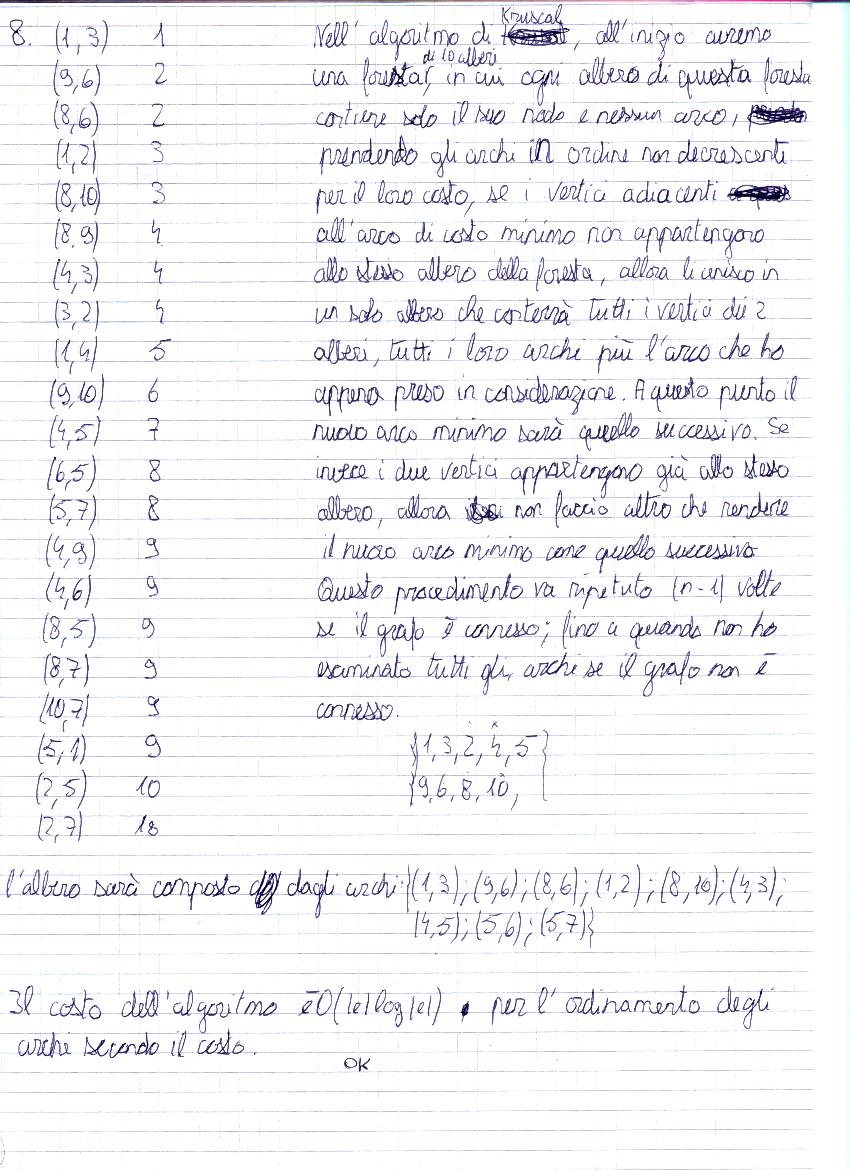 8. (1,3) 1 Nell' algoritmo di Kruscal, all'inizio avremo
(9,6) 2 una foresta, di 10 alberi in cui ogni albero di questa foresta
(8,6) 2 contiene solo il suo nodo e nessun arco,
(1,2) 3 prendendo gli archi in ordine non decrescenti
(8,10) 3 per il loro costo, se i vertici adiacenti
(8,9) 4 all'arco di costo minimo non appartengono
(4,3) 4 allo stesso albero della foresta, allora li unisco in
(3,2) 4 un solo albero che conterrà tutti i vertici dei 2
(1,4) 5 alberi, tutti i loro archi più l'arco che ho
(9,10) 6 appena preso in considerazione. A questo punto il
(4,5) 7 nuovo arco minimo sarà quello successivo. Se
(6,5) 8 invece i due vertici appartengono già allo stesso
(5,7) 8 albero, allora non faccio altro che rendere
(4,9) 9 il nuovo arco minimo come quello successivo
(4,6) 9 Questo procedimento va ripetuto (n-1) volte
(8,5) 9 se il grafo è connesso; fino a quando non ho
(8,7) 9 esaminato tutti gli archi se il grafo non è
(10,7) 9 connesso.
(5,1) 9 {1,3,2,4,5}
(2,5) 10 {9,6,8,10,
(2,7) 18
l'albero sarà composto dagli archi {(1,3);(9,6);(8,6);(1,2);(8,10);(4,3);
(4,5);(5,6);(5,7)}
Il costo dell'algoritmo è O(|e|log|e|) per l'ordinamento degli
archi secondo il costo.
OK